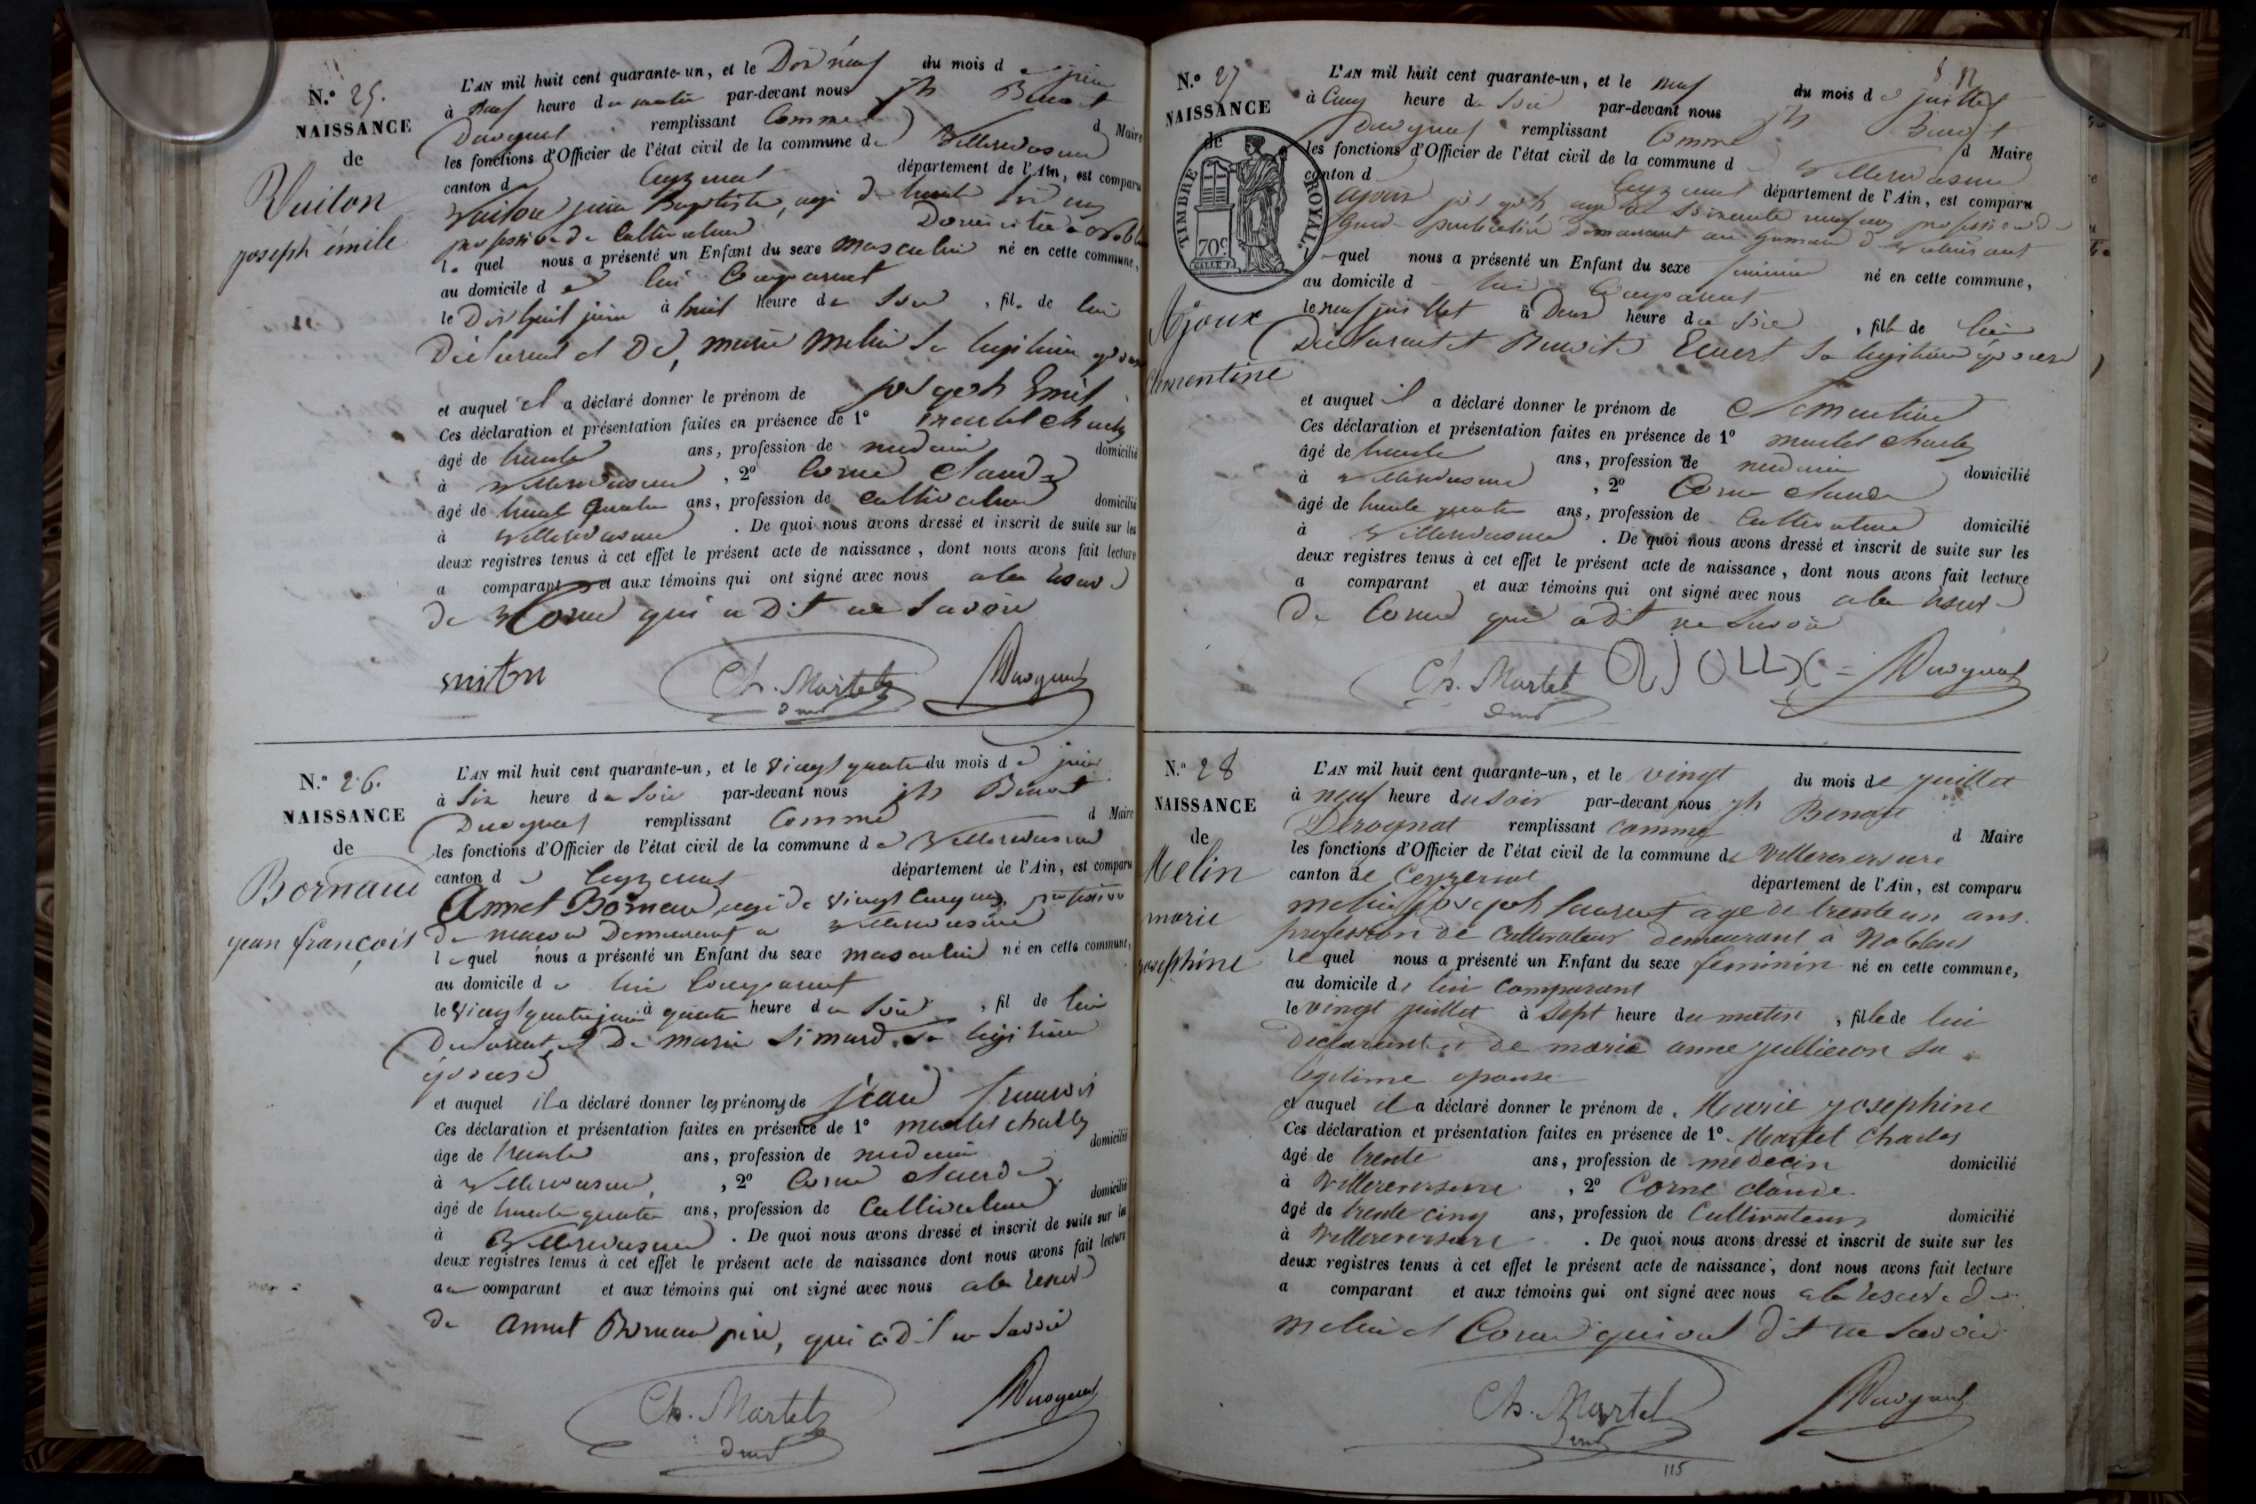 N.º 25.
NAISSANCE
de
Vuiton
joseph émile
L'AN mil huit cent quarante-un, et le Dix neuf du mois d e juin
à Neuf heure du matin par-devant nous jh Benoit
remplissant Comme d Maire
les fonctions d'Officier de l'état civil de la commune de Villereversure
canton d département de l'Ain, est comparu
Vuiton jean Baptiste, agé de trente six ans
profession de Cultivateur Domicilié a
le quel nous a présenté un Enfant du sexe masculin né en cette commune,
au domicile d e lui Comparant
le Dix huit juin à huit heure du Soir , fil. de lui
Déclarant et De, marie Melin Sa légitime épouse
et auquel il a déclaré donner le prénom de joseph Emile
Ces déclaration et présentation faites en présence de 1º martel charles
âgé de trente ans, profession de medecin domicilié
à Villereversure , 2º Corne Claude
âgé de trente quatre ans, profession de cultivateur domicilié
à Villereversure . De quoi nous avons dressé et inscrit de suite sur les
deux registres tenus à cet effet le présent acte de naissance , dont nous avons fait lecture
a comparant et aux témoins qui ont signé avec nous a la reserve
de Corne qui a Dit ne Savoir
vuiton Ch. Martel dmd
N.º 26.
NAISSANCE
de
Bornaud
jean françois
L'AN mil huit cent quarante-un, et le Vingt quatre du mois d e juin
à Six heure du Soir par-devant nous jh Benoit
remplissant Comme d Maire
les fonctions d'Officier de l'état civil de la commune d e Villereversure
canton d e département de l'Ain, est comparu
Annet agé de vingt Cinq ans, profession
de maçon Demeurant a Villereversure
le quel nous a présenté un Enfant du sexe masculin né en cette commune,
au domicile d e lui Comparant
le Vingt quatre juin à quatre heure du Soir , fil de lui
Déclarant et De marie Simard, Sa légitime
épouse
et auquel il a déclaré donner les prénoms de jean francois
Ces déclaration et présentation faites en présence de 1º martel charles
âge de trente ans, profession de medecin domicilié
à Villereversure , 2º Corne Claude
âgé de trente quatre ans, profession de Cultivateur domicilié
à Villereversure . De quoi nous avons dressé et inscrit de suite sur les
deux registres tenus à cet effet le présent acte de naissance dont nous avons fait lecture
au comparant et aux témoins qui ont signé avec nous a la reserve
de annet pere, qui a dit ne Savoir
Ch. Martel dmd
N.º 27
NAISSANCE
de
TIMBRE ROYAL.
70c
Ajoux
Clementine
L'AN mil huit cent quarante-un, et le neuf du mois d e juillet
à Cinq heure du Soir par-devant nous jh Benoit
remplissant Comme d Maire
les fonctions d'Officier de l'état civil de la commune d Villereversure
canton d département de l'Ain, est comparu
ajoux joseph agé de Soixante neuf ans profession de
garde particulier Demeurant au hameau de
quel nous a présenté un Enfant du sexe feminin né en cette commune,
au domicile d lui Comparant
le neuf juillet à Deux heure du Soir , fille de lui
Déclarant et Sa légitime épouse
et auquel il a déclaré donner le prénom de Clementine
Ces déclaration et présentation faites en présence de 1º martel charles
âgé de trente ans, profession de medecin domicilié
à Villereversure , 2º Corne Claude
âgé de trente quatre ans, profession de Cultivateur domicilié
à Villereversure . De quoi nous avons dressé et inscrit de suite sur les
deux registres tenus à cet effet le présent acte de naissance, dont nous avons fait lecture
a comparant et aux témoins qui ont signé avec nous a la reserve
de Corne qui a dit ne Savoir
Ch. Martel dmd ajoux
N.º 28
NAISSANCE
de
Melin
marie
josephine
L'AN mil huit cent quarante-un, et le vingt du mois de juillet
à neuf heure du soir par-devant nous jh Benoit
Derognat remplissant comme d Maire
les fonctions d'Officier de l'état civil de la commune de Villereversure
canton de Ceyzeriat département de l'Ain, est comparu
melin joseph laurent agé de trente un ans
profession de Cultivateur demeurant à Noblens
le quel nous a présenté un Enfant du sexe feminin né en cette commune,
au domicile de lui comparant
le vingt juillet à Sept heure du matin , fille de lui
Déclarant et de marie anne jullieron Sa
légitime epouse
et auquel il a déclaré donner le prénom de Marie josephine
Ces déclaration et présentation faites en présence de 1º Martel Charles
âgé de trente ans, profession de médecin domicilié
à Villereversure , 2º Corne claude
âgé de trente cinq ans, profession de Cultivateur domicilié
à Villereversure . De quoi nous avons dressé et inscrit de suite sur les
deux registres tenus à cet effet le présent acte de naissance, dont nous avons fait lecture
a comparant et aux témoins qui ont signé avec nous a la reserve de
melin et Corne qui ont Dit ne Savoir
Ch. Martel dmd
115